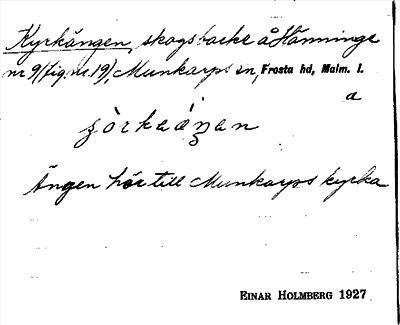 Kyrkängen, skogsbacke å Hänninge
nr 9 (fig. nr. 19), Munkarps sn, Frosta hd, Malm. l.
a
Ängen hör till Munkarps kyrka
EINAR HOLMBERG 1927